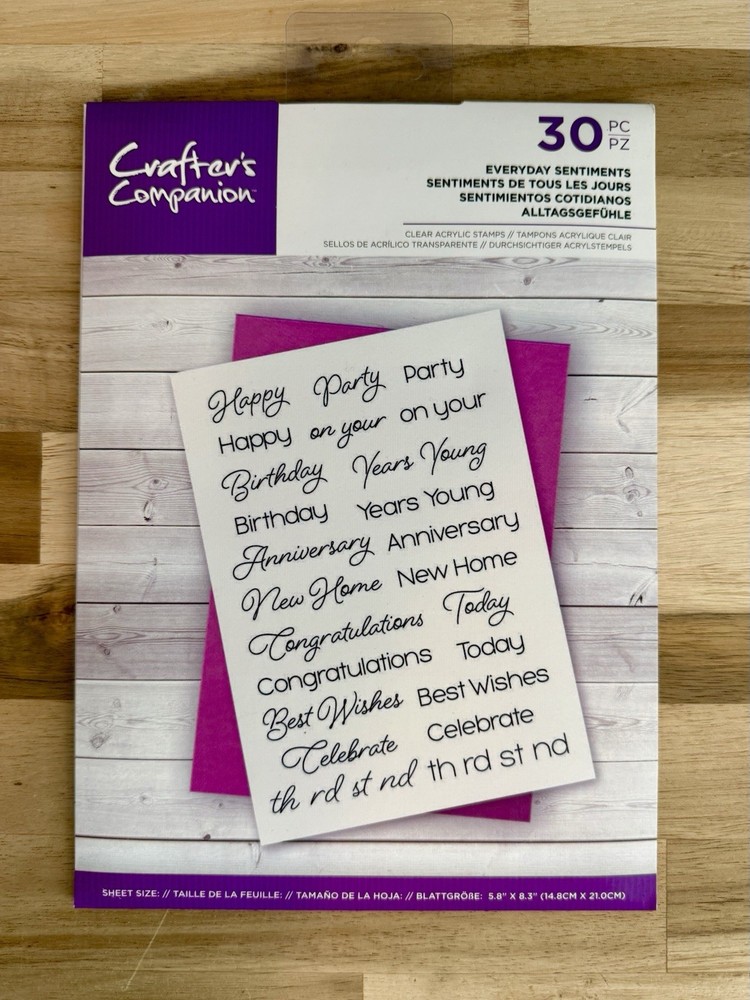 Crafter's
Companion™
30 PC
PZ
EVERYDAY SENTIMENTS
SENTIMENTS DE TOUS LES JOURS
SENTIMIENTOS COTIDIANOS
ALLTAGSGEFÜHLE
CLEAR ACRYLIC STAMPS // TAMPONS ACRYLIQUE CLAIR
SELLOS DE ACRÍLICO TRANSPARENTE // DURCHSICHTIGER ACRYLSTEMPELS
Happy Party Party
Happy on your on your
Birthday Years Young
Birthday Years Young
Anniversary Anniversary
New Home New Home
Congratulations Today
Congratulations Today
Best Wishes Best Wishes
Celebrate Celebrate
th rd st nd th rd st nd
SHEET SIZE: // TAILLE DE LA FEUILLE: // TAMAÑO DE LA HOJA: // BLATTGRÖßE: 5.8" X 8.3" (14.8CM X 21.0CM)